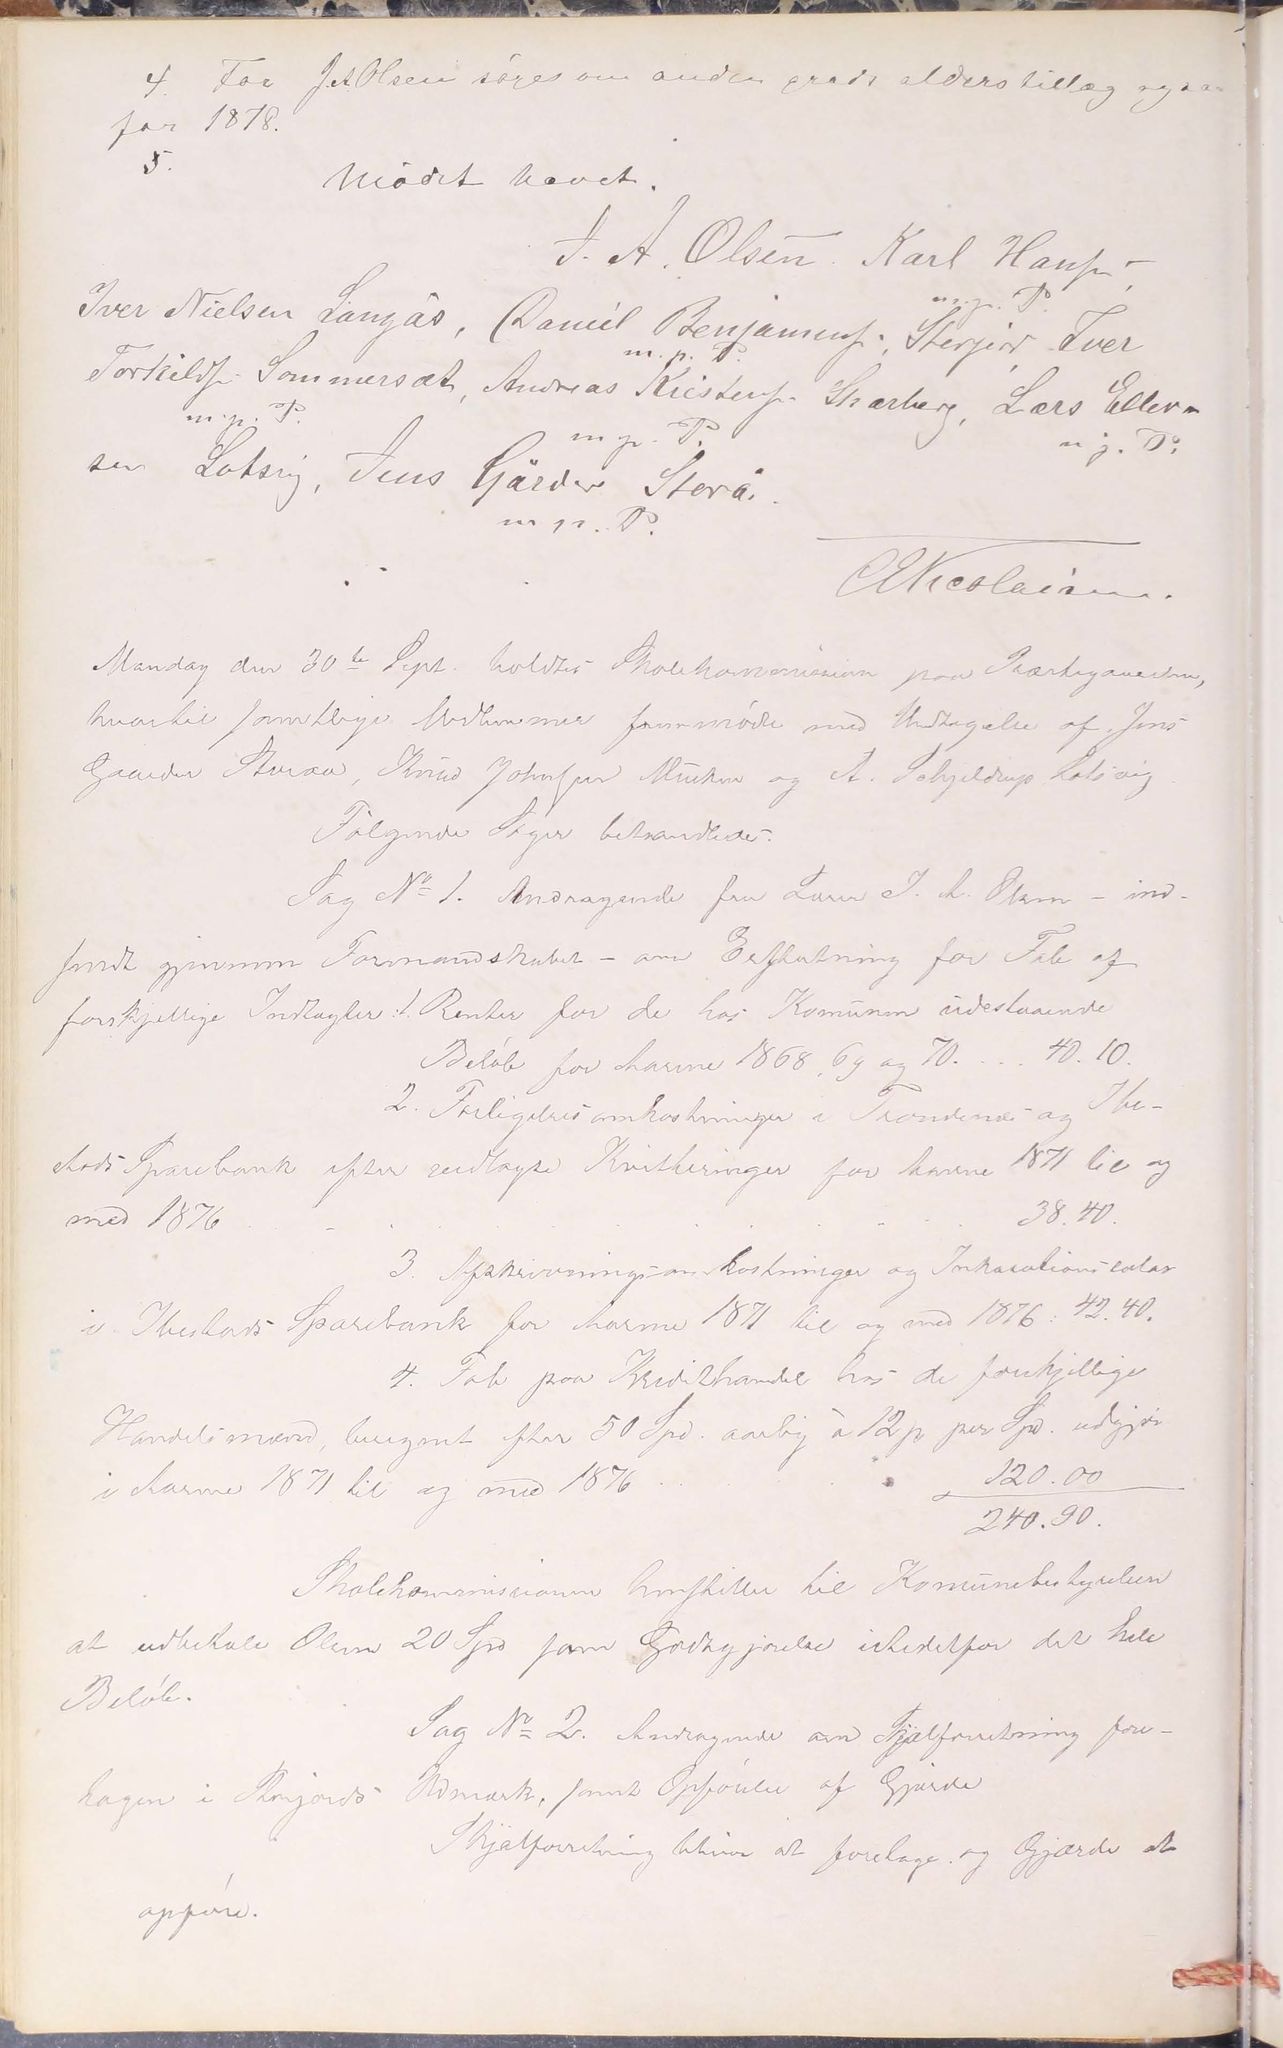 4. For J.A Olsen søges om anden grads alderstillæg ogsaa
for 1878.
5. Mödet hævet.
J. A. Olsen. Karl Hansen,
m. p. P.
Iver Nielsen Langås, Daniel Benjaminsen, Iver
m. p. P.
Torkildsen Sommersæt, Andreas Kristensen Skarberg, Lars Eller-
m. p. P. m. p. P. m. p. P.
sen Lotsvig, Jens Gårder Storå.
m. p. P.
Nicolaisen.
Mandag den 30te Sept. holdtes Skolekommission paa Præstegaarden,
hvortil samtlige Medlemmer fremmødte med Undtagelse af Jens
Gaarder Storaa, Knud Johnsen og A. Schjeldrup Lotsvig
Følgende Sager behandledes.
Sag No 1. Andragende fra Lærer J. A. Olsen – ind-
sendt gjennem Formandskabet – om Erstatning for Tab af
forskjellige Indtægter: 1. Renter for de hos Komunen udestaaende
Beløb for Aarene 1868, 69 og 70. . . . 40. 10.
2. omkostninger i Trondenæs og Ibe-
stads Sparebank efter vedlagte Kvitteringer for Aarene 1871 til og
med 1876 . . . . . . . . . . . . 38. 40.
3. Afskrivningsomkostninger og
i Ibestads Sparebank for Aarene 1871 til og med 1876: 42. 40.
4. Tab paa Kredithandel hos de forskjellige
Handelsmænd, beregnet efter 50 Spd. aarlig à 12 p per Spd. udgjør
i Aarene 1871 til og med 1876 . . . . 120. 00
240. 90.
Skolekommissionen henstiller til Komunebestyrelsen
at udbetale Olsen 20 Spd som Godtgjørelse istedetfor det hele
Beløb.
Sag No 2. Andragende om Skjælforretning fore-
tagen i Udmark, samt Opførelse af Gjærde
Skjælforretning bliver at foretage og Gjærde at
opføre.